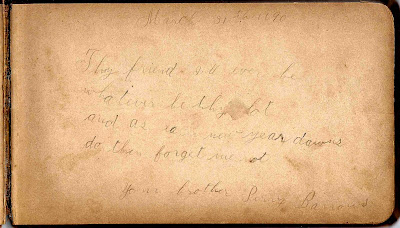 March 31st 1890
Thy friend will ever be
whatever be thy lot
and as each new year dawns
do thou forget me not
Your brother Perry Barrows